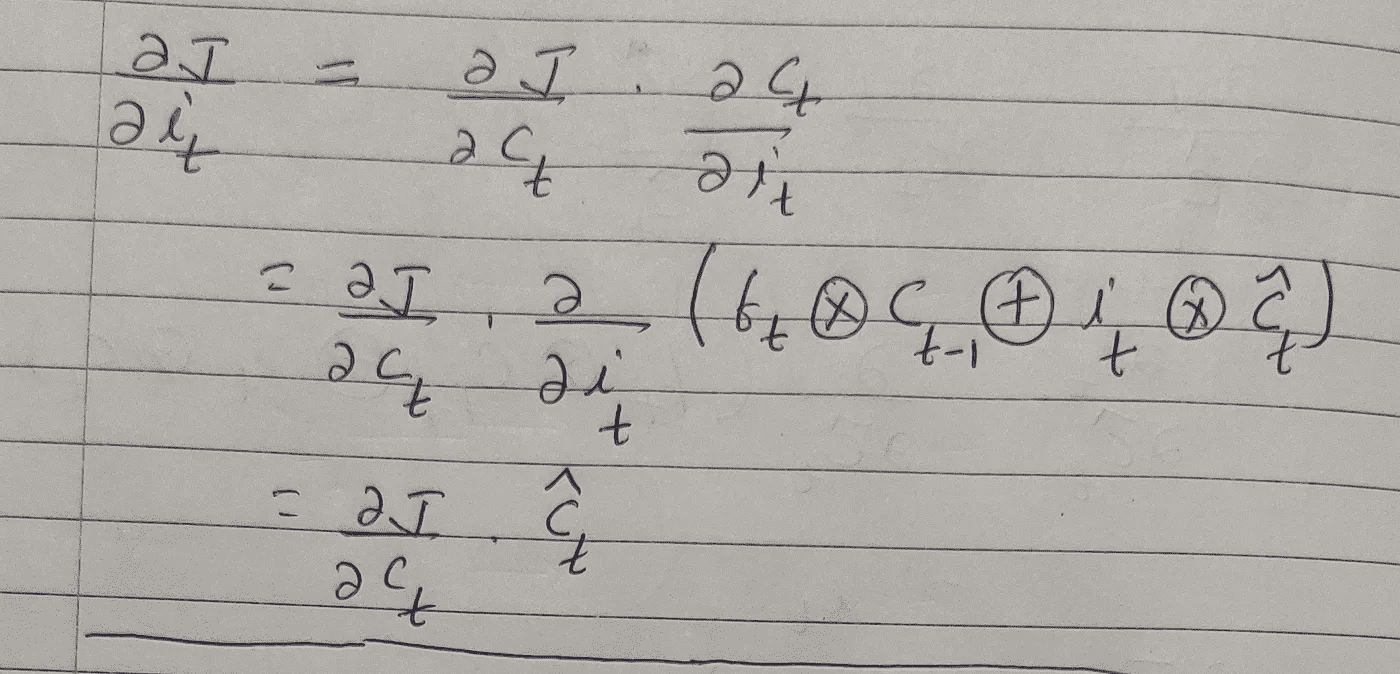 ∂J/∂i_t = ∂J/∂C_t · ∂C_t/∂i_t
= ∂J/∂C_t · ∂/∂i_t (f_t ⊗ C_{t-1} ⊕ i_t ⊗ Ĉ_t)
= ∂J/∂C_t · Ĉ_t